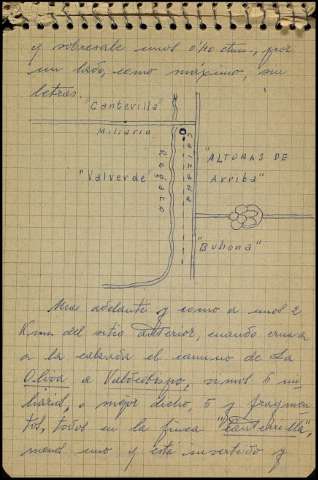 y sobresale unos 0'40 ctms, por
un lado, como máximo, sin
letras.
"Cantevilla"
Miliario
"Valverde"
Regato
Calzada
"ALTORAS DE
Arriba"
"Buhona"
Mas adelante y como a unos 2
Kms del sitio anterior, cuando cruza
a la calzada el camino de La
Oliva a Valdeobispo, vemos 6 mi-
liarios, o mejor dicho, 5 y fragmen-
tos, todos en la finca
menos uno y está invertido y